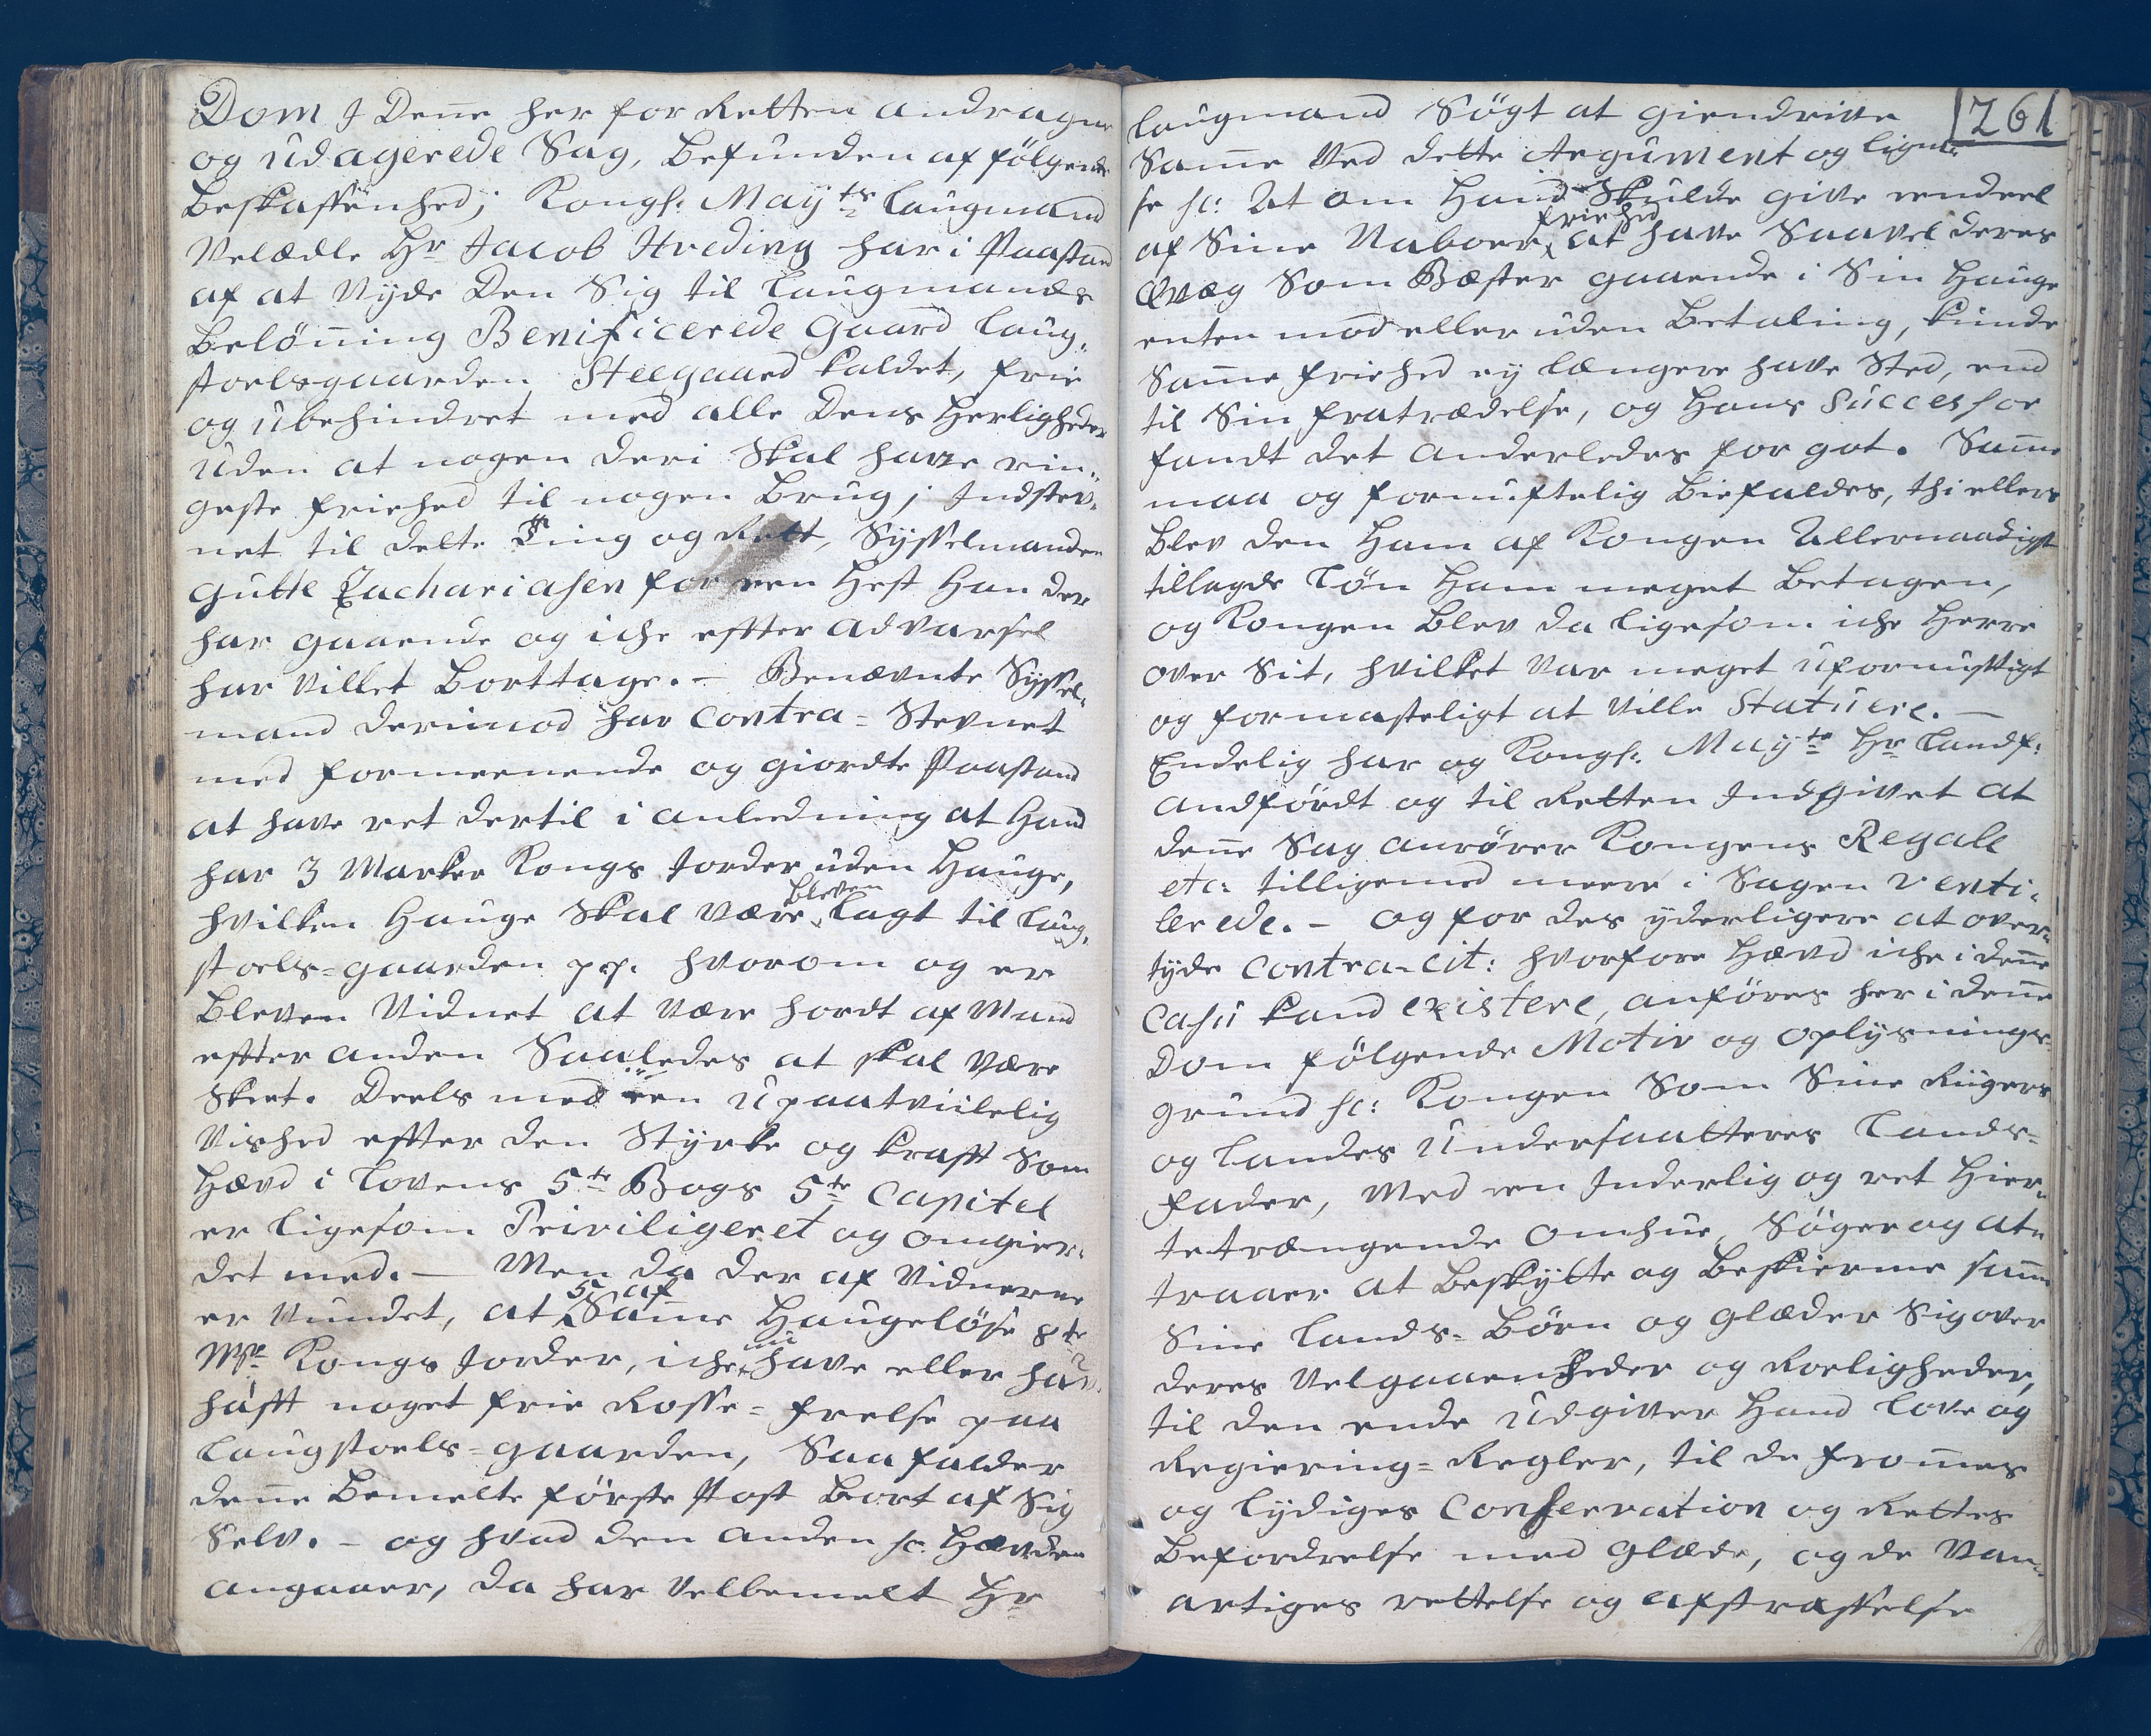 Dom I Denne her for Retten andragne
og udagerede Sag, befunden af følgende
Beskaffenhed; Kongl. Mayts Laugmand
Velædle Hr Jacob Hveding har i Paastand
af at Nyde Den Sig til Laugmands
Belønning Benificerede Gaard Laug-
stoelsgaarden Steegaard kaldet, frie
og ubehindret med alle Dens Herligheder
uden at nogen deri Skal have rin-
geste friehed til nogen Brug; Indstev-
net til dette Ting og Rett, Sysselmanden
Gutte Zachariasen for een Hest Han der
har gaaende og iche effter advarsel
har villet borttage. - Benævnte Syssel-
mand derimod har contra-Stevnet
med formeenende og giordte Paastand
at have ret dertil i anledning at Hand
har 3 Marker Kongs Jorder uden Hauge,
hvilken Hauge Skal være bleven lagt til Laug-
stoels-gaarden pp. hvorom og er
Bleven Vidnet at være hørdt af Mand
effter anden Saaledes at skal være
Skeet. Deels med een upaatvivlelig
Vished effter den Styrke og krafft Som
Hævd i Lovens 5te Bogs 5te Capitel
er ligesom Priviligeret og omgier-
det med. - Men da der af Vidnerne
er Vundet, at 5 af Samme Haugeløse 8te
Mrk Kongs Jorder, iche nu have eller hav-
hafft noget frie Rosse-frelse paa
Laugstoels-gaarden, Saa falder
denne bemelte første Post bort af Sig
Selv. - og hvad den anden sc. Hævden
angaaer, da har Velbemelt Hr
261
Laugmand Søgt at giendrive
Samme Ved dette Argument og lignel-
se sc: At om Hand Skulde give eendeel
af Sine Naboer friehed at have Saavel deres
Qvæg Som Bæster gaaende i Sin Hauge
enten mod eller uden Betaling, kunde
Samme friehed ey længere have Sted, end
til Sin fratrædelse, og Hans Successor
fandt det anderledes for got. Samme
maa og fornufftelig Biefaldes, thi ellers
blev den Ham af Kongen Allernaadigst
tillagde Løn Ham meget betagen,
og Kongen blev da ligesom iche Herre
over Sit, hvilket var meget ufornufftigt
og formasteligt at ville Statuere. -
Endelig har og Kongl. Mayts Hr Landf:
andført og til Retten Indgivet at
denne Sag anrører Kongens Regale
etc: tilligemed meere i Sagen venti-
lerede. - og for des yderligere at over-
tyde Contra-cit: hvorfore Hævd iche i denne
Casu kand existere, anføres her i denne
Dom følgende Motiv og oplysnings-
grund sc: Kongen Som Sine Riigers
og Landes Undersaatteres Lands-
fader, Med een Inderlig og ret Hier-
tetrængende Omhue, Søger og at-
traaer at Beskytte og Beskierme samme
Sine Lands-Børn og glæder Sig over
deres Velgaaenheder og Roeligheder,
til den ende udgiver Hand Love og
Regiering-Regler, til de frommes
og lydiges Conservation og Rettes
Befordrelse med glæde, og de Van-
artiges rettelse og afstraffelse